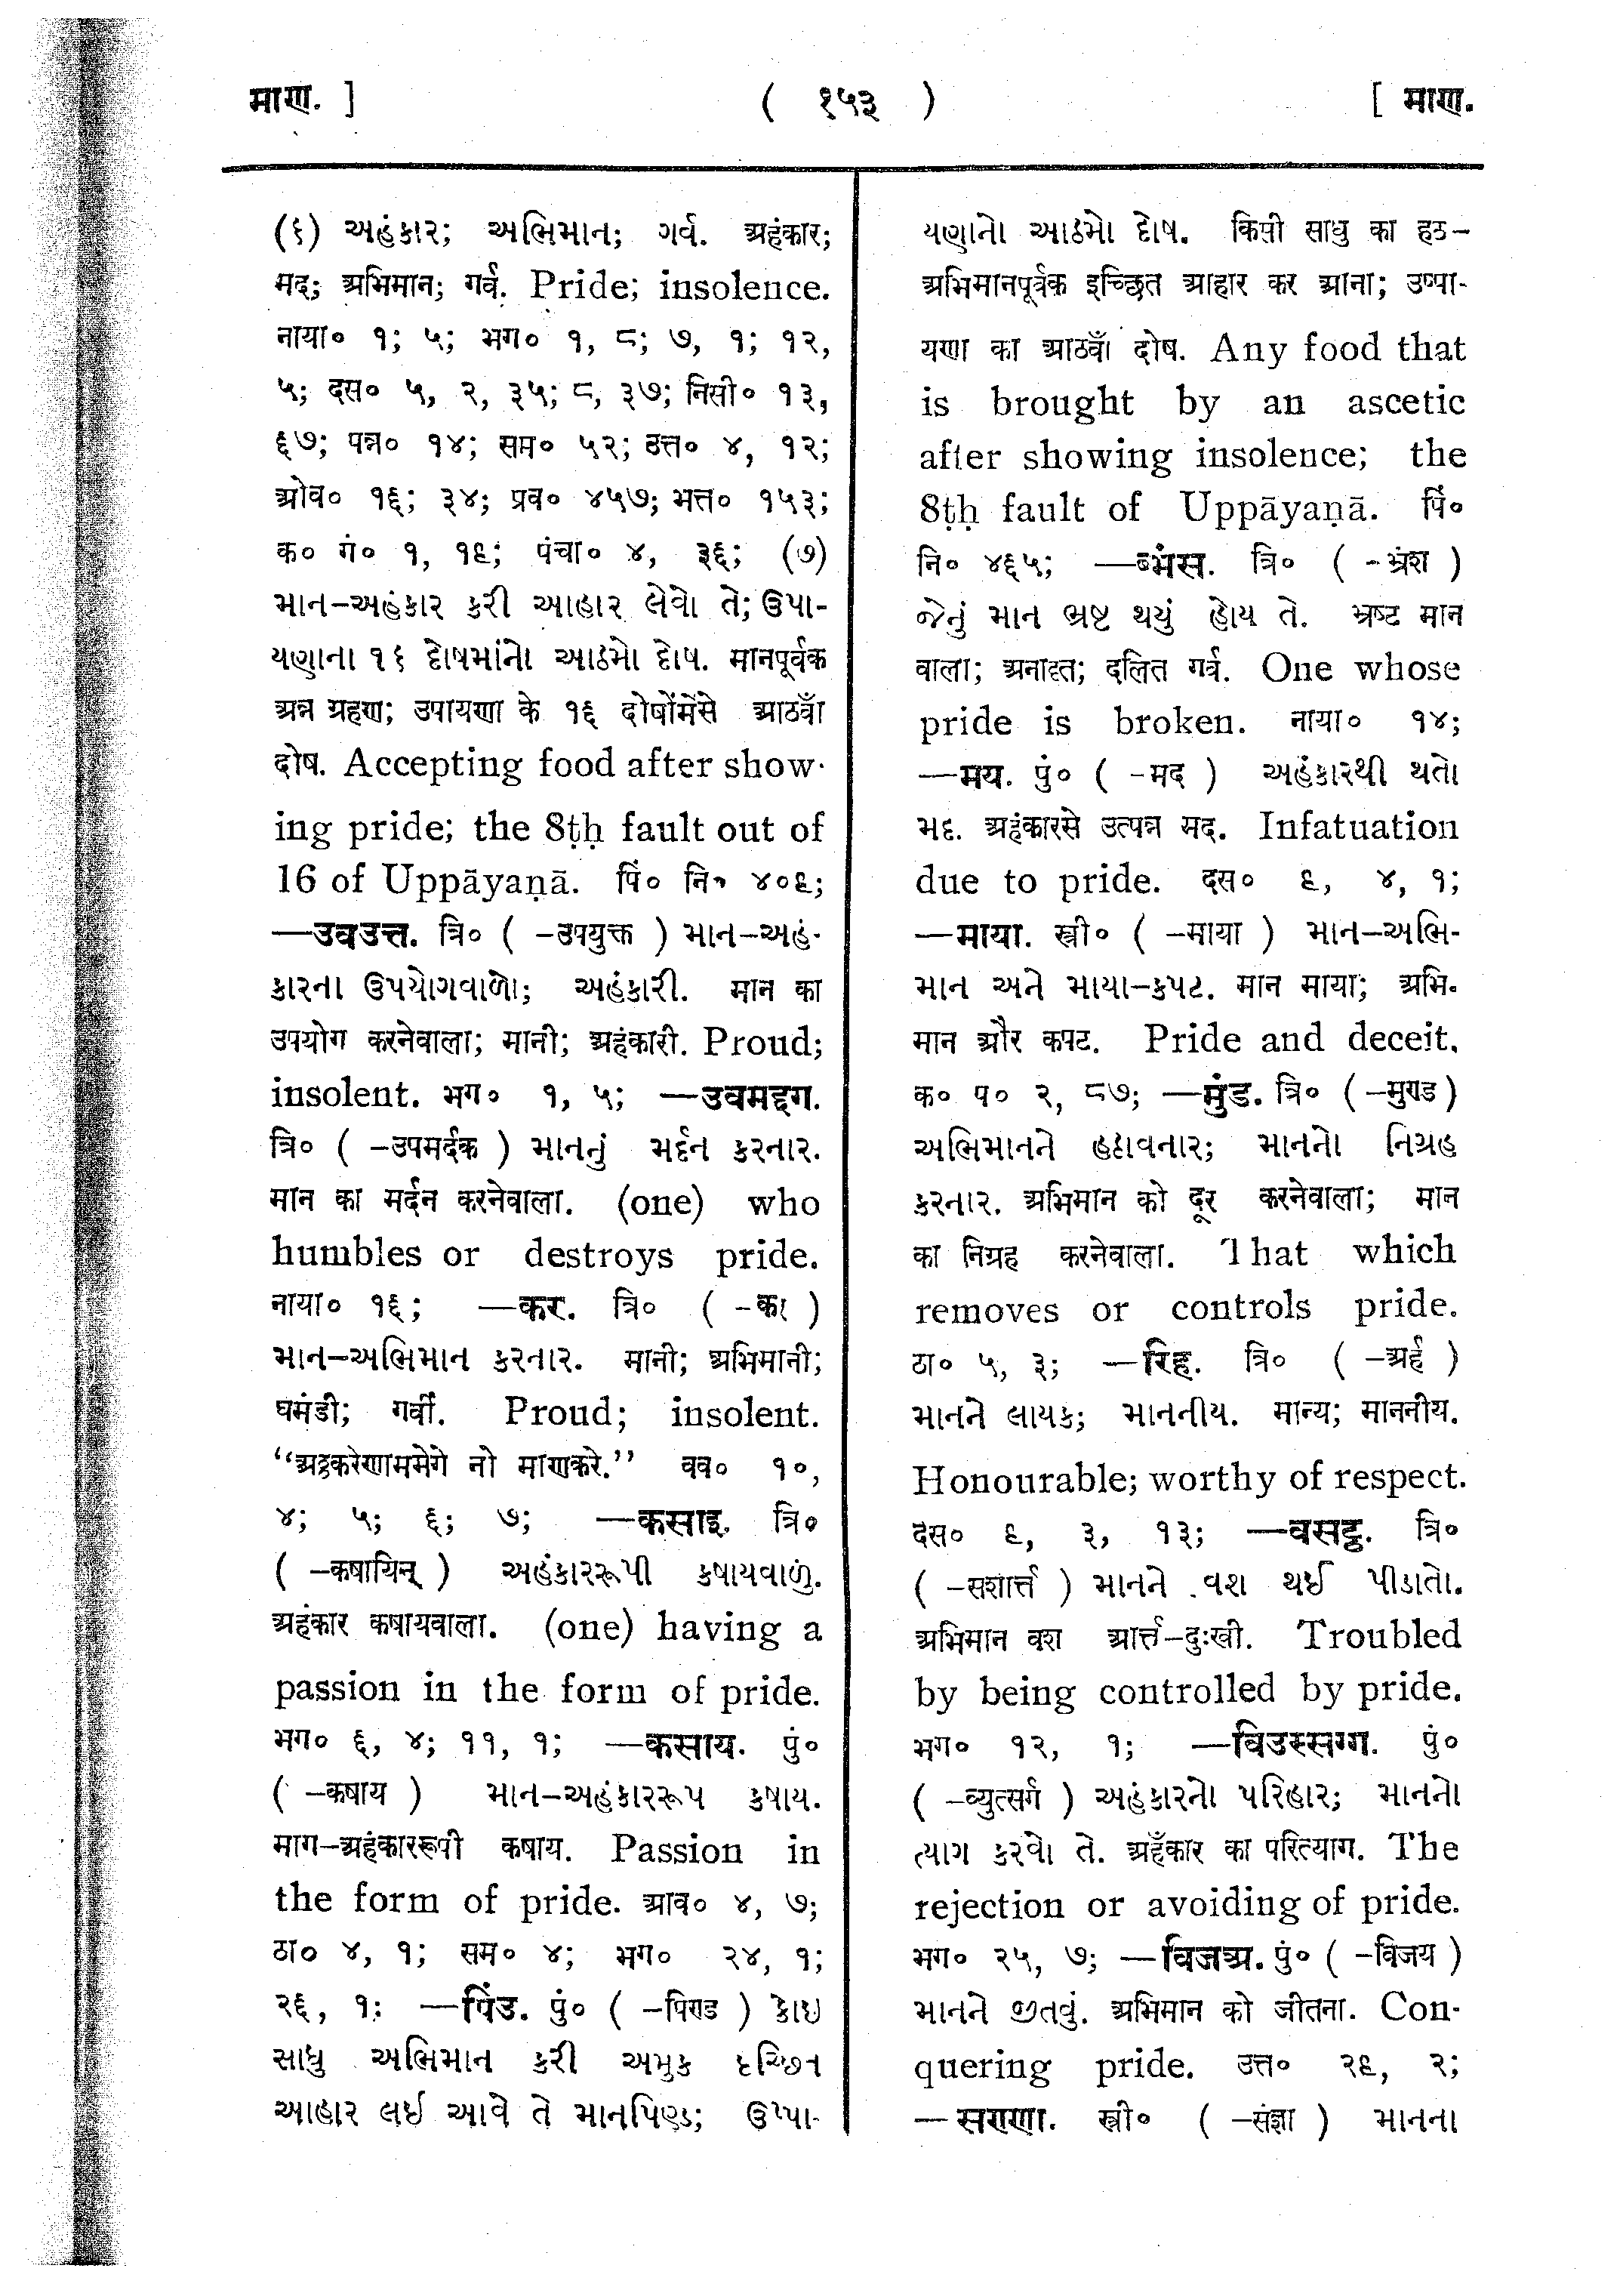 माण. ] ( १५३ ) [ माण.
(૬) અહંકાર; અભિમાન; ગર્વ. अहंकार;
मद; अभिमान; गर्व. Pride; insolence.
नाया० १; ५; भग० १, ८; ७, १; १२,
५; दस० ५, २, ३५; ८, ३७; निसी० १३,
६७; पन्न० १४; सम० ५२; उत्त० ४, १२;
ओव० १६; ३४; प्रव० ४५७; भत्त० १५३;
क० गं० १, १९; पंचा० ४, ३६; (७)
માન-અહંકાર કરી આહાર લેવો તે; ઉપા-
યણાના ૧૬ દોષમાંનો આઠમો દોષ. मानपूर्वक
अन्न ग्रहण; उपायणा के १६ दोषोंमेंसे आठवाँ
दोष. Accepting food after show-
ing pride; the 8ṭḥ fault out of
16 of Uppāyaṇā. पिं० नि० ४०९;
—उवउत्त. त्रि० ( -उपयुक्त ) માન-અહં-
કારના ઉપયોગવાળો; અહંકારી. मान का
उपयोग करनेवाला; मानी; अहंकारी. Proud;
insolent. भग० १, ५; —उवमद्दग.
त्रि० ( -उपमर्दक ) માનનું મર્દન કરનાર.
मान का मर्दन करनेवाला. (one) who
humbles or destroys pride.
नाया० १६; —कर. त्रि० ( -कर )
માન-અભિમાન કરનાર. मानी; अभिमानी;
घमंडी; गर्वी. Proud; insolent.
“अट्ठकरेणाममेगे नो माणकरे.” वव० १०,
४; ५; ६; ७; —कसाइ. त्रि०
( -कषायिन् ) અહંકારરૂપી કષાયવાળું.
अहंकार कषायवाला. (one) having a
passion in the form of pride.
भग० ६, ४; ११, १; —कसाय. पुं०
( -कषाय ) માન-અહંકારરૂપ કષાય.
माग-अहंकाररूपी कषाय. Passion in
the form of pride. आव० ४, ७;
ठा० ४, १; सम० ४; भग० २४, १;
२६, १; —पिंड. पुं० ( -पिण्ड ) કોઇ
સાધુ અભિમાન કરી અમુક ઇચ્છિત
આહાર લઈ આવે તે માનપિણ્ડ; ઉપ્પા-
યણાનો આઠમો દોષ. किसी साधु का हठ-
अभिमानपूर्वक इच्छित आहार कर आना; उप्पा-
यणा का आठवाँ दोष. Any food that
is brought by an ascetic
after showing insolence; the
8ṭḥ fault of Uppāyaṇā. पिं०
नि० ४६५; —ब्भंस. त्रि० ( -भ्रंश )
જેનું માન ભ્રષ્ટ થયું હોય તે. भ्रष्ट मान
वाला; अनादृत; दलित गर्व. One whose
pride is broken. नाया० १४;
—मय. पुं० ( -मद ) અહંકારથી થતો
મદ. अहंकारसे उत्पन्न मद. Infatuation
due to pride. दस० ९, ४, १;
—माया. स्त्री० ( -माया ) માન-અભિ-
માન અને માયા-કપટ. मान माया; अभि-
मान और कपट. Pride and deceit.
क० प० २, ८७; —मुंड. त्रि० ( -मुण्ड )
અભિમાનને હઠાવનાર; માનનો નિગ્રહ
કરનાર. अभिमान को दूर करनेवाला; मान
का निग्रह करनेवाला. That which
removes or controls pride.
ठा० ५, ३; —रिह. त्रि० ( -अर्ह )
માનને લાયક; માનનીય. मान्य; माननीय.
Honourable; worthy of respect.
दस० ९, ३, १३; —वसट्ट. त्रि०
( -सशार्त्त ) માનને વશ થઈ પીડાતો.
अभिमान वश आर्त्त-दुःखी. Troubled
by being controlled by pride.
भग० १२, १; —विउस्सग्ग. पुं०
( -व्युत्सर्ग ) અહંકારનો પરિહાર; માનનો
ત્યાગ કરવો તે. अहँकार का परित्याग. The
rejection or avoiding of pride.
भग० २५, ७; —विजअ. पुं० ( -विजय )
માનને જીતવું. अभिमान को जीतना. Con-
quering pride. उत्त० २९, २;
—सण्णा. स्त्री० ( -संज्ञा ) માનના